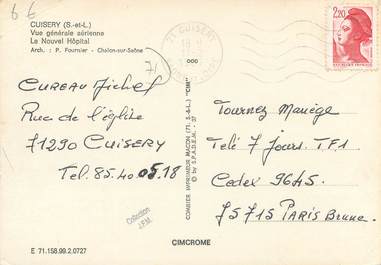 6 €
CUISERY (S.-et-L.)
Vue générale aérienne
Le Nouvel Hôpital
Arch. : P. Fournier - Chalon-sur-Saône
71
71 CUISERY
2,20
REPUBLIQUE FRANÇAISE
Cureau Michel
Rue de l'église
71290 Cuisery
Tel. 85.40.05.18
COMBIER IMPRIMEUR MACON (71. S.-&-L.) "CIM"
© by S.P.A.D.E.M. 37
Tournez Manège
Télé 7 Jours. TF1
Cedex 9645
75715 PARIS Brune.
Collection
J.F.M.
CIMCROME
E 71.158.99.2.0727